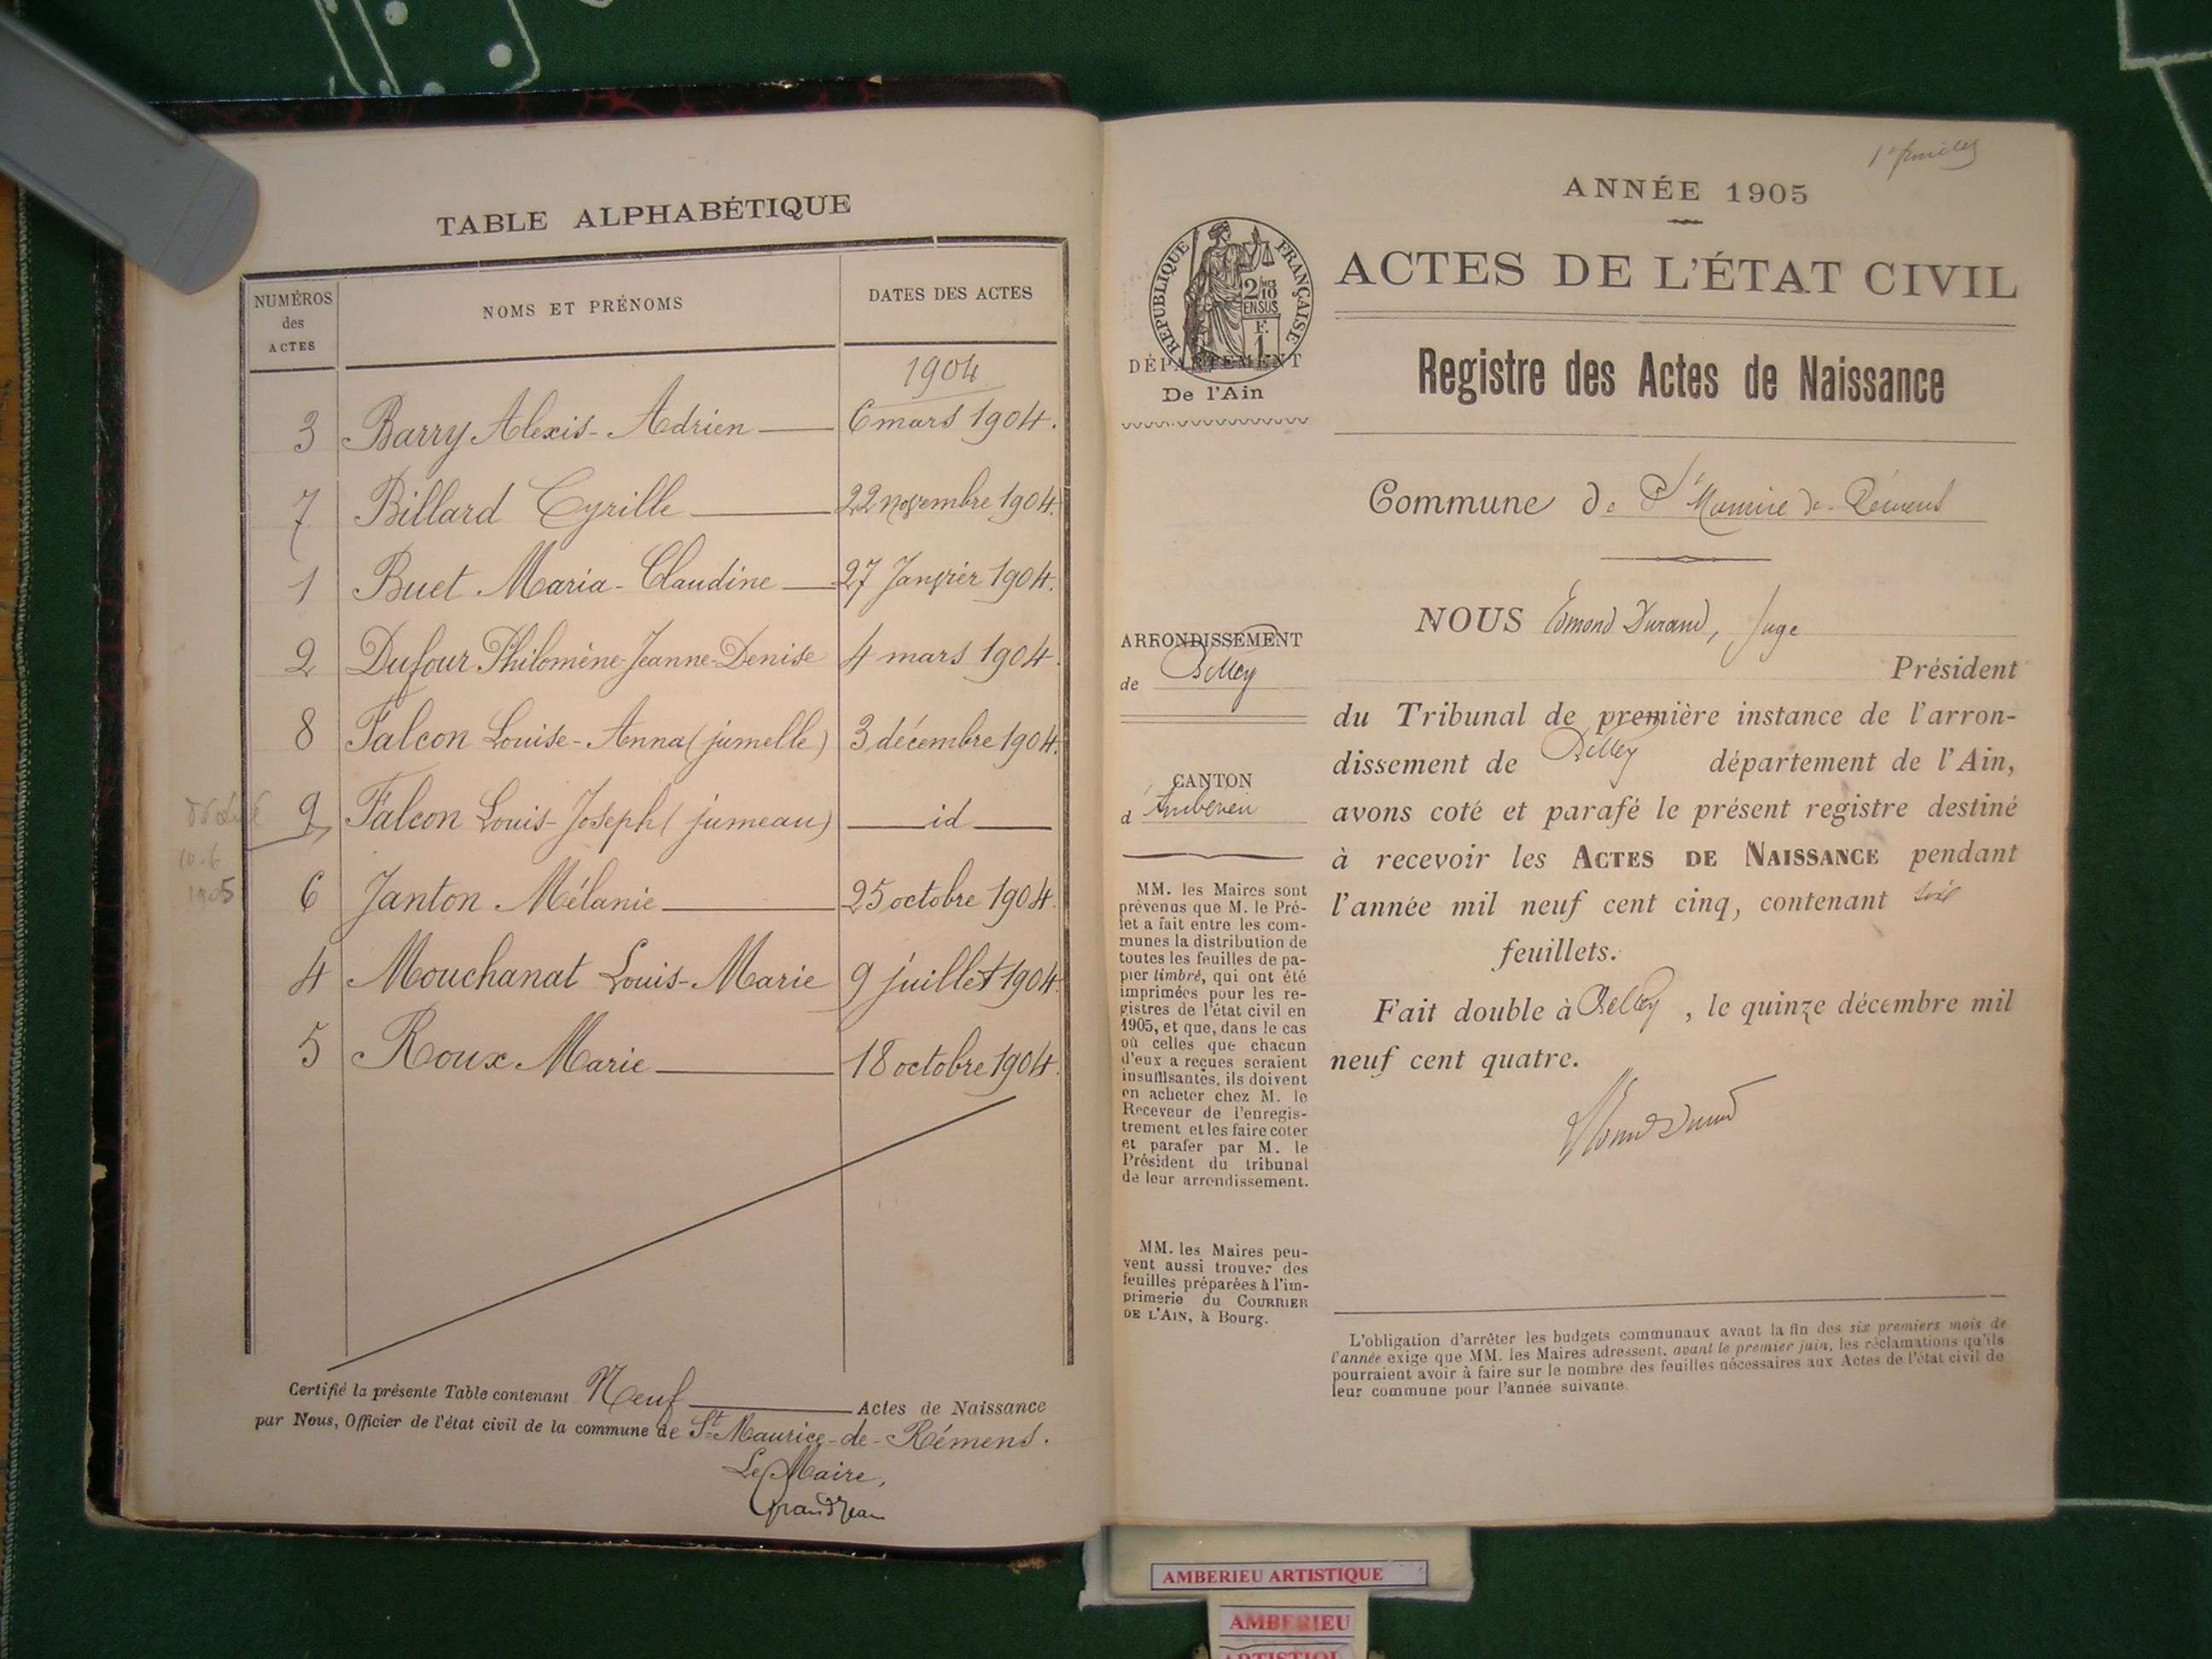 TABLE ALPHABÉTIQUE
NUMÉROS des ACTES
NOMS ET PRÉNOMS
DATES DES ACTES
1904
3 Barry Alexis-Adrien 6 mars 1904.
7 Billard Cyrille 22 novembre 1904.
1 Buet Maria-Claudine 27 Janvier 1904.
2 Dufour Philomène-Jeanne-Denise 4 mars 1904.
8 Falcon Louise-Anna (jumelle) 3 décembre 1904.
9 Falcon Louis-Joseph (jumeau) id
1905
6 Janton Mélanie 25 octobre 1904.
4 Mouchanat Louis-Marie 9 juillet 1904.
5 Roux Marie 18 octobre 1904.
Certifié la présente Table contenant Neuf Actes de Naissance
par Nous, Officier de l'état civil de la commune de St Maurice-de-Rémens.
Le Maire,
Grandjean
ANNÉE 1905
ACTES DE L'ÉTAT CIVIL
Registre des Actes de Naissance
RÉPUBLIQUE FRANÇAISE
2/10 MES
EN SUS
F.
1
DÉPARTEMENT
De l'Ain
Commune de St Maurice de Rémens
ARRONDISSEMENT
de Belley
CANTON
d'Ambérieu
MM. les Maires sont
prévenus que M. le Pré-
fet a fait entre les com-
munes la distribution de
toutes les feuilles de pa-
pier timbré, qui ont été
imprimées pour les re-
gistres de l'état civil en
1905, et que, dans le cas
où celles que chacun
d'eux a reçues seraient
insuffisantes, ils doivent
en acheter chez M. le
Receveur de l'enregis-
trement et les faire coter
et parafer par M. le
Président du tribunal
de leur arrondissement.
MM. les Maires peu-
vent aussi trouver des
feuilles préparées à l'im-
primerie du COURRIER
DE L'AIN, à Bourg.
NOUS Edmond Durand, Juge
Président
du Tribunal de première instance de l'arron-
dissement de Belley département de l'Ain,
avons coté et parafé le présent registre destiné
à recevoir les ACTES DE NAISSANCE pendant
l'année mil neuf cent cinq, contenant
feuillets.
Fait double à Belley, le quinze décembre mil
neuf cent quatre.
Edmond Durand
L'obligation d'arrêter les budgets communaux avant la fin des six premiers mois de
l'année exige que MM. les Maires adressent, avant le premier juin, les réclamations qu'ils
pourraient avoir à faire sur le nombre des feuilles nécessaires aux Actes de l'état civil de
leur commune pour l'année suivante.
AMBERIEU ARTISTIQUE
AMBERIEU